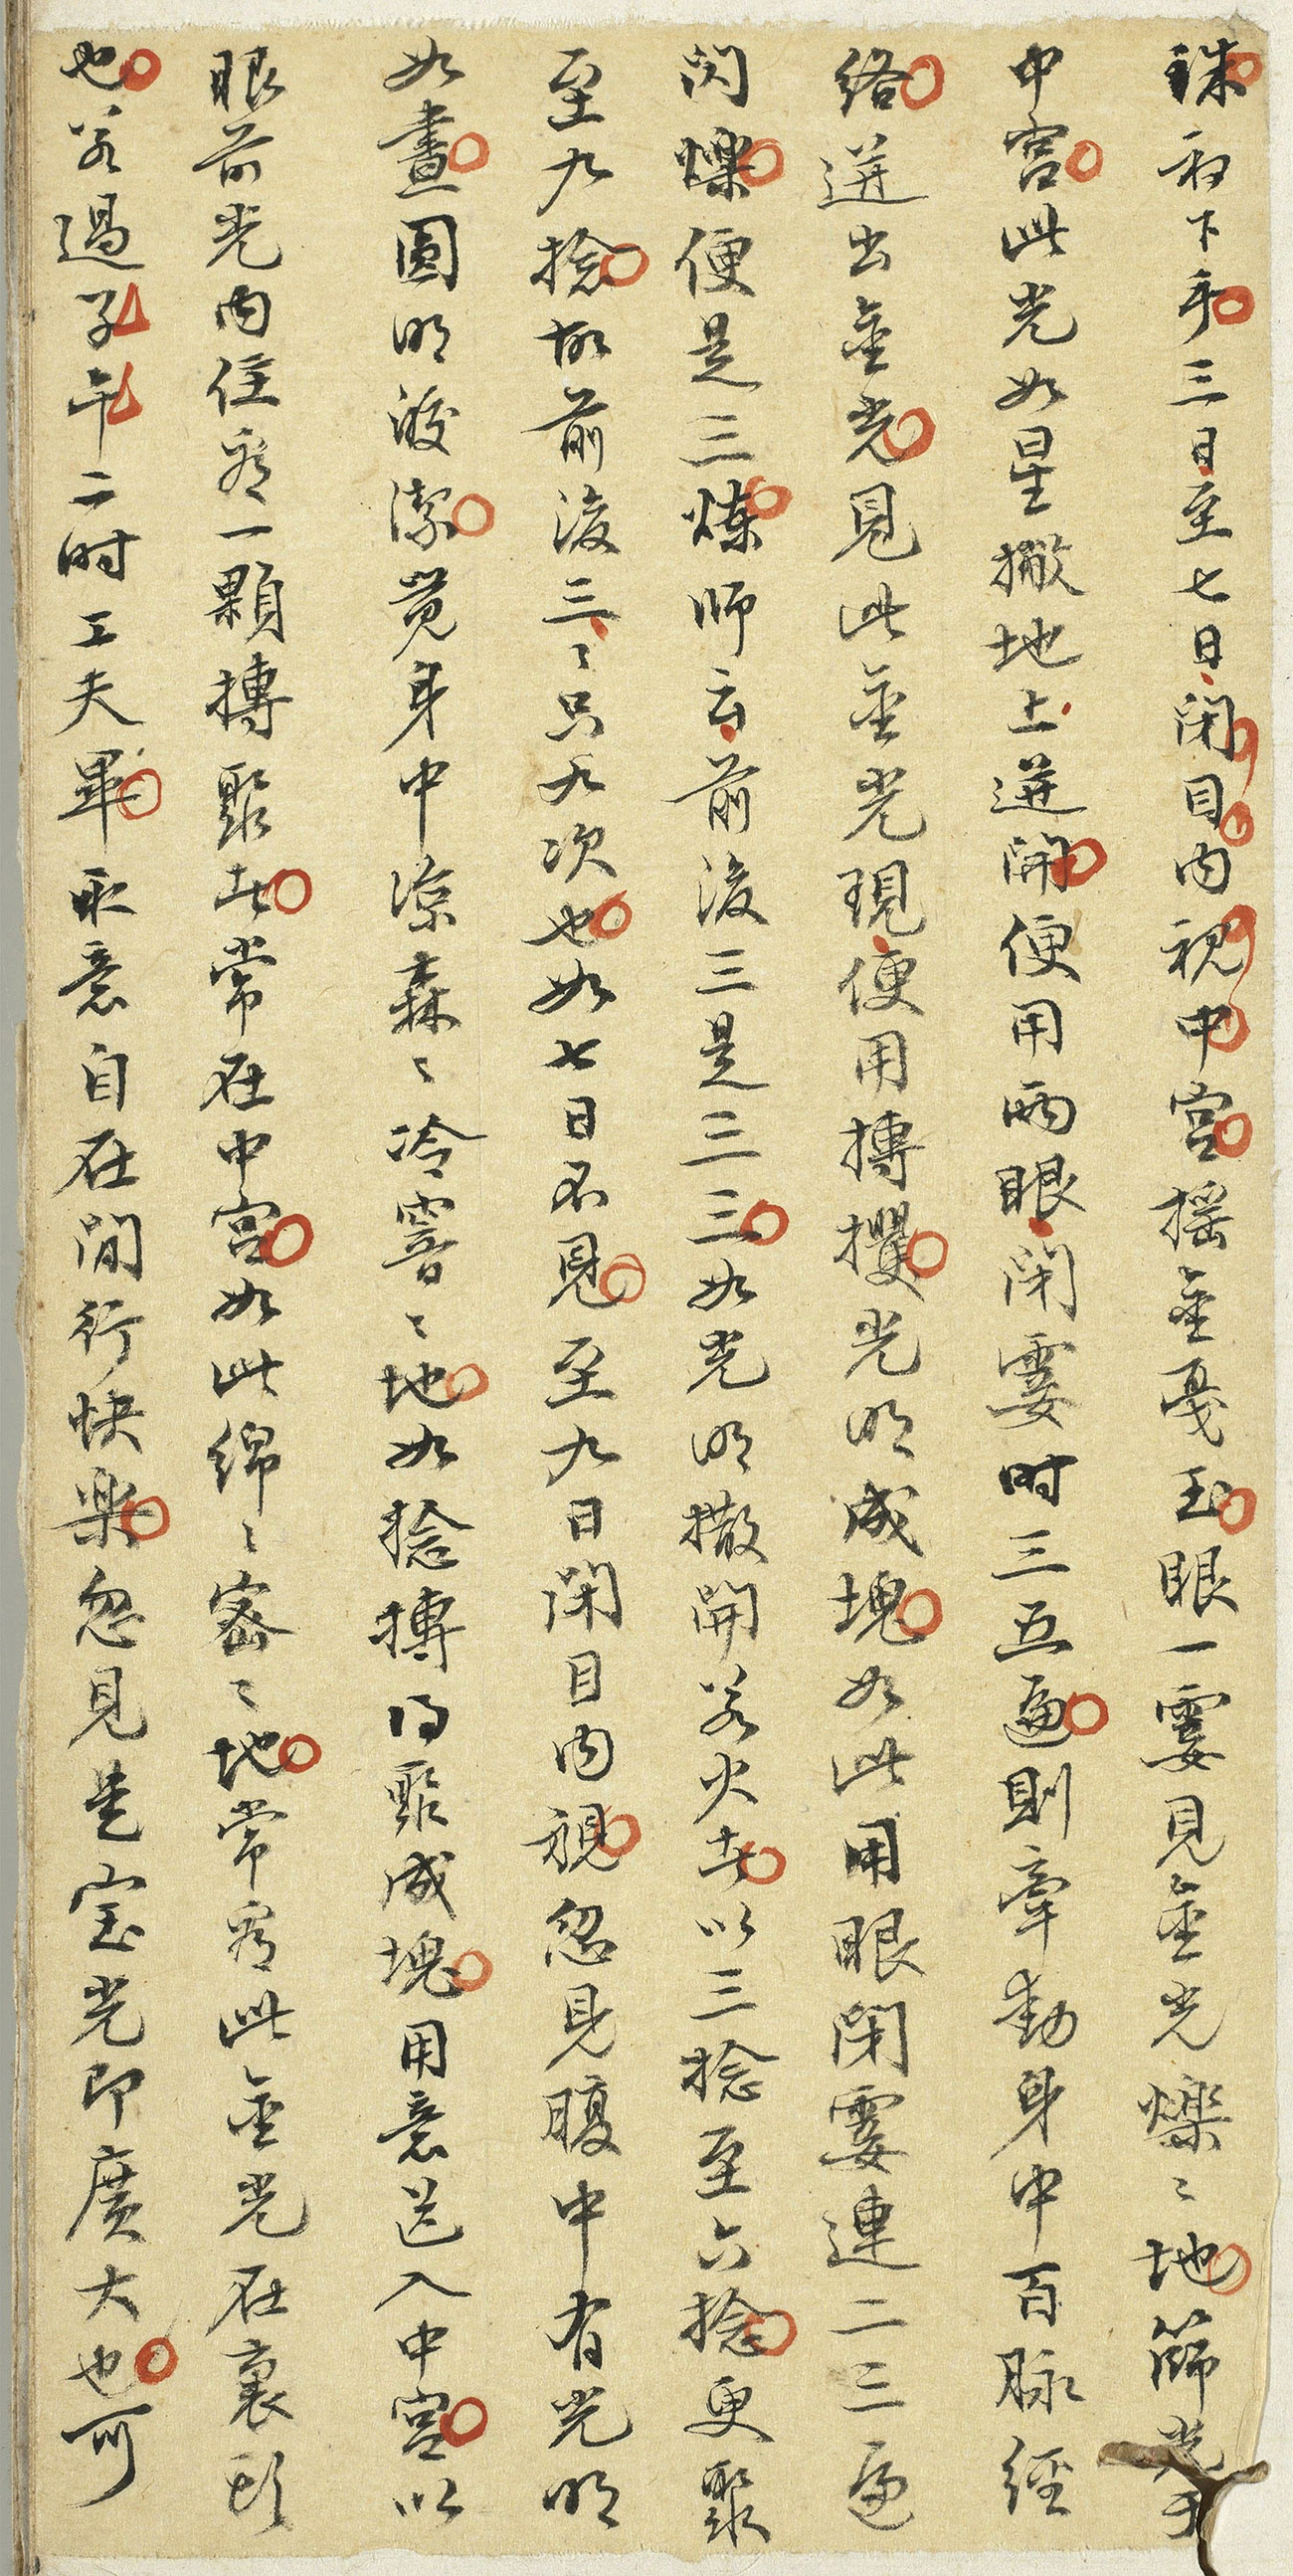 誅初下手三日至七日閉目內視中宮搖金戛玉眼一霎見金光爍〻地篩光于
中宮此光如星撒地上迸開便用兩眼閉霎时三五遍則牽動身中百脉經
絡迸出金光見此金光現便用摶攫光明成塊如此用眼閉霎連二三遍
闪爍便是三炼师云前後三是三三如光明撒開若火去以三捻至六捻更聚
至九捻故前後三〻只九次也如七日不見至九日閉目内視忽見腹中有光明
如晝圓明皎潔覚身中凉森〻冷霅〻地如捻摶得聚成塊用意送入中宮以
眼前光内住看一顆摶聚此常在中宮如此绵〻密〻地常看此金光在裏頭
也若過子午二时工夫畢取意自在閒行快樂忽見是宝光即廣大也可